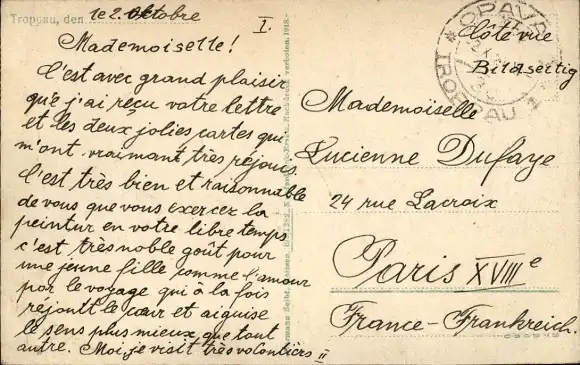 Troppau, den
le 2. Oktobre
I.
Mademoiselle!
C'est avec grand plaisir
que j'ai reçu votre lettre
et les deux jolies cartes qui
m'ont vraimant très réjouis.
C'est très bien et raisonnable
de vous que vous exercer la
peintur en votre libre temps
c'est, très noble goût pour
une jeune fille comme l'amour
por le voyage qui à la fois
réjouit le cœur et aiguise
le sens plus mieux que tout
autre. Moi, je visit très volontiers II
Nachdruck verboten. 1918.
OPAVA
* TROPPAU 1 *
Côté vue
Bildseitig
Mademoiselle
Lucienne Dufaye
24 rue Lacroix
Paris XVIIIe
France-Frankreich.